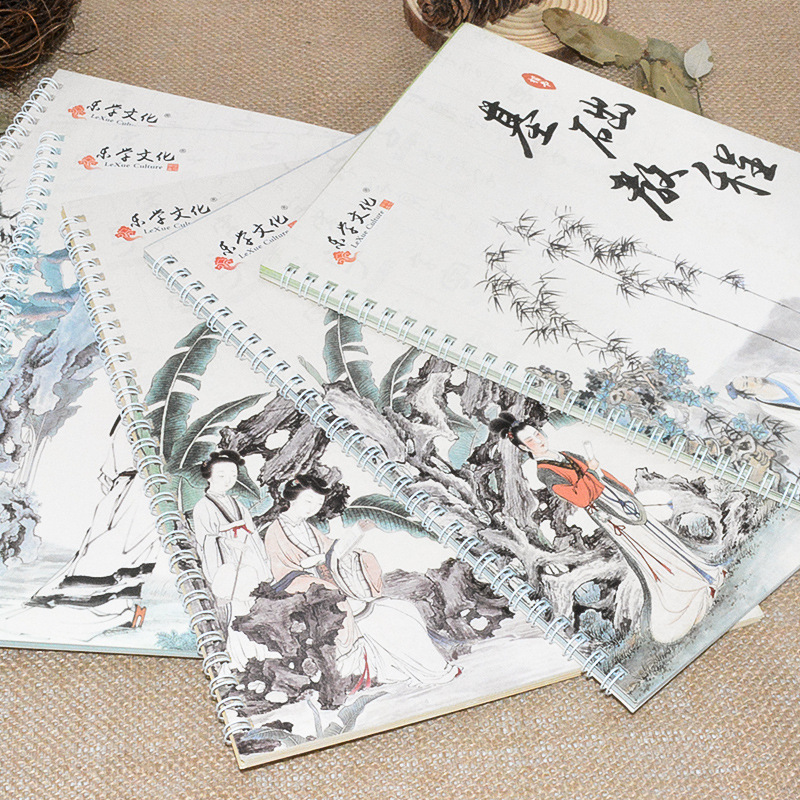 乐学文化®
LeXue Cultu
乐学文化®
LeXue Culture
乐学文化®
LeXue Cul
乐学文化®
LeXue Culture
乐学文化®
LeXue Culture
基础
教程